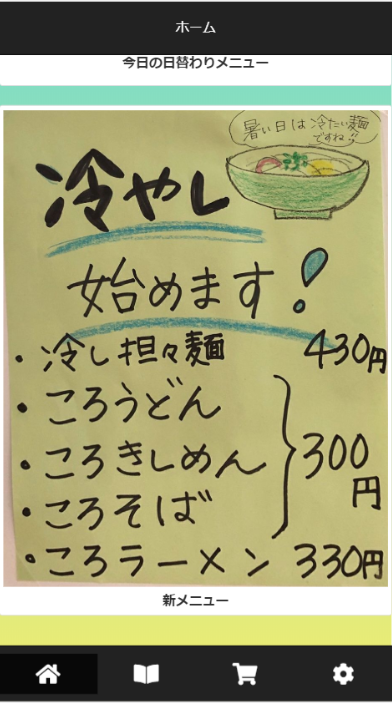 ホーム
今日の日替わりメニュー
暑い日は冷たい麺
ですね
冷やし
始めます!
・冷し担々麺 430円
・ころうどん
・ころきしめん
・ころそば
300円
・ころラーメン 330円
新メニュー